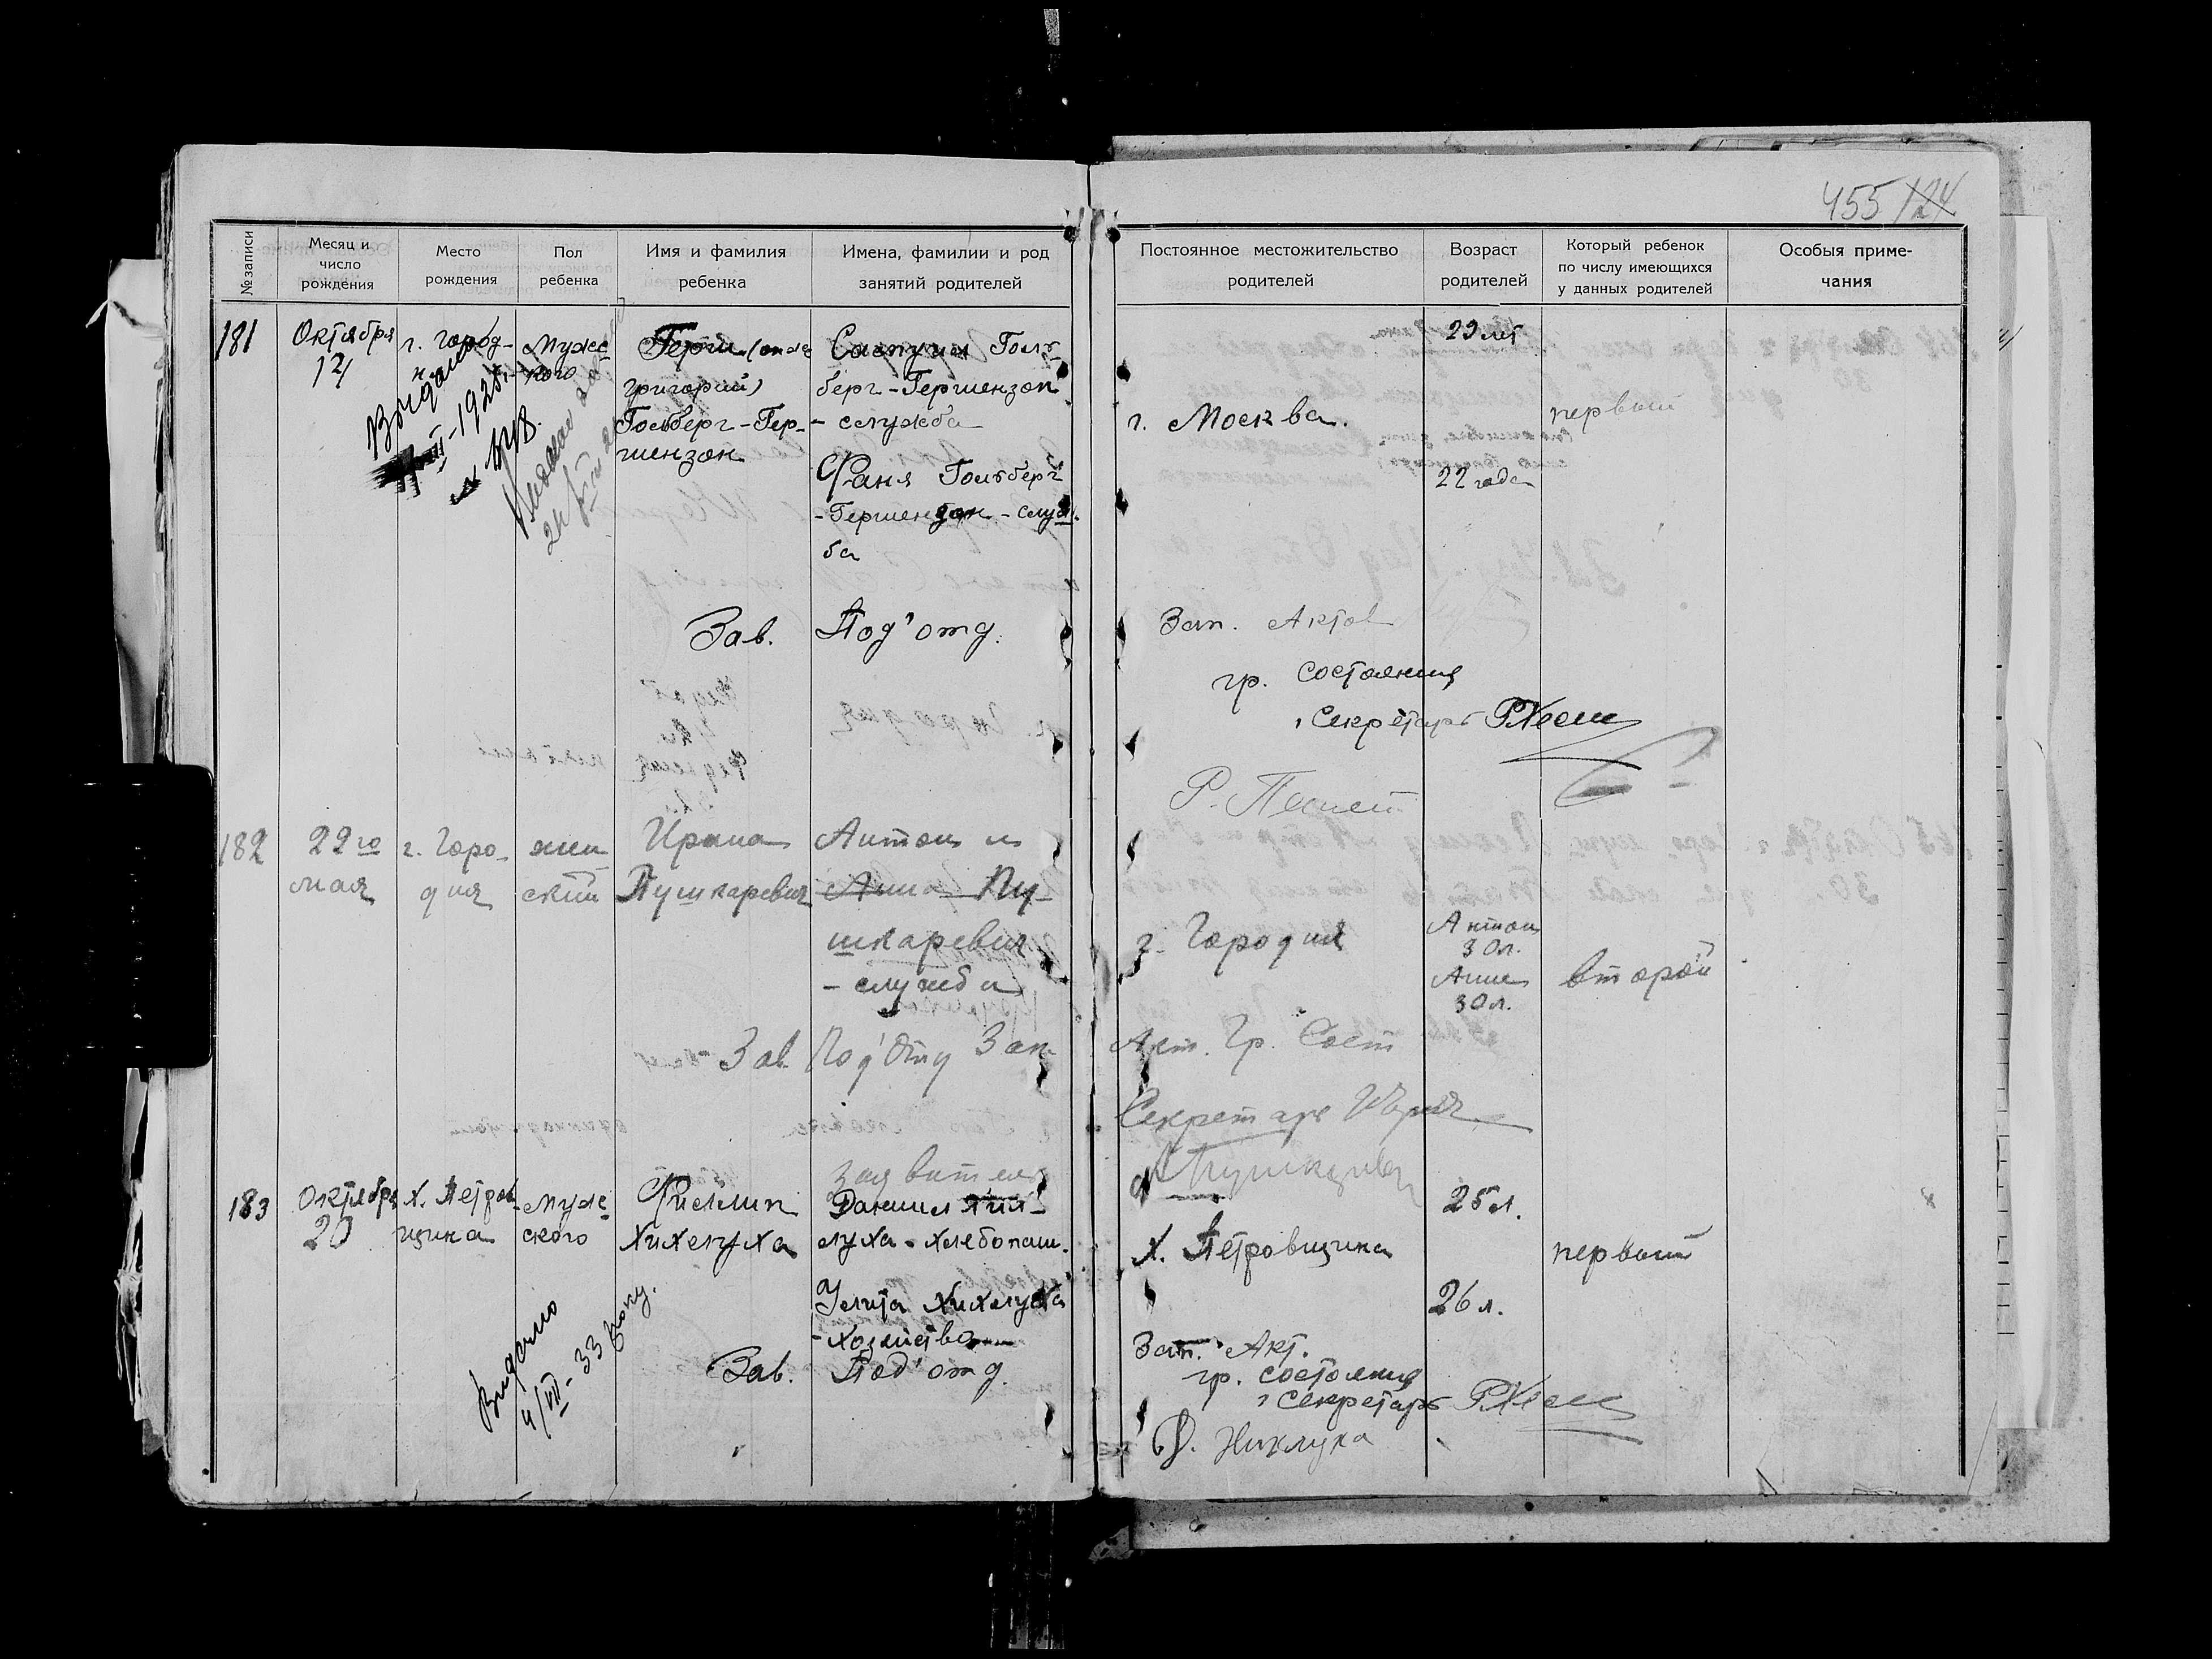 455 124
№ записи
Месяц и число рождения
Место рождения
Пол ребенка
Имя и фамилия ребенка
Имена, фамилии и род занятий родителей
Постоянное местожительство родителей
Возраст родителей
Который ребенок по числу имеющихся у данных родителей
Особыя приме-
чания
181
Октября
12
г. Город-
ня
Мужс
кого
Герш (он же
Григорий)
Гольберг-Гер-
шензон
Гольберг-Гершензон
- служба
Фаня Гольберг
-Гершензон - служ-
ба
г. Москва.
29 лет
22 года
первый
Выдано
1925 г.
Зав. Под'отд.
Зап. Актов
гр. состояния
Секретарь
182
29го
мая
г. Горо-
дня
жен
ский
Пушкаревич
Антон и
Анна Пу-
шкаревич
- служба
г. Городня
Антон
30 л.
Анна
30 л.
второй
Зав Под'Отд Зап.
Акт. Гр. Сост
Секретарь
183
Октября
20
х. Петров-
щина
мужс
ского
Филлип
Хихлуха
Даниил Хих-
луха - хлебопаш.
Улита Хихлуха
- хозяйство
х. Петровщина
25 л.
26 л.
первый
Выдано
4/VII-33 року.
Зав. Под'отд.
Зап. Акт.
гр. состояния
Секретарь
Д. Хихлуха